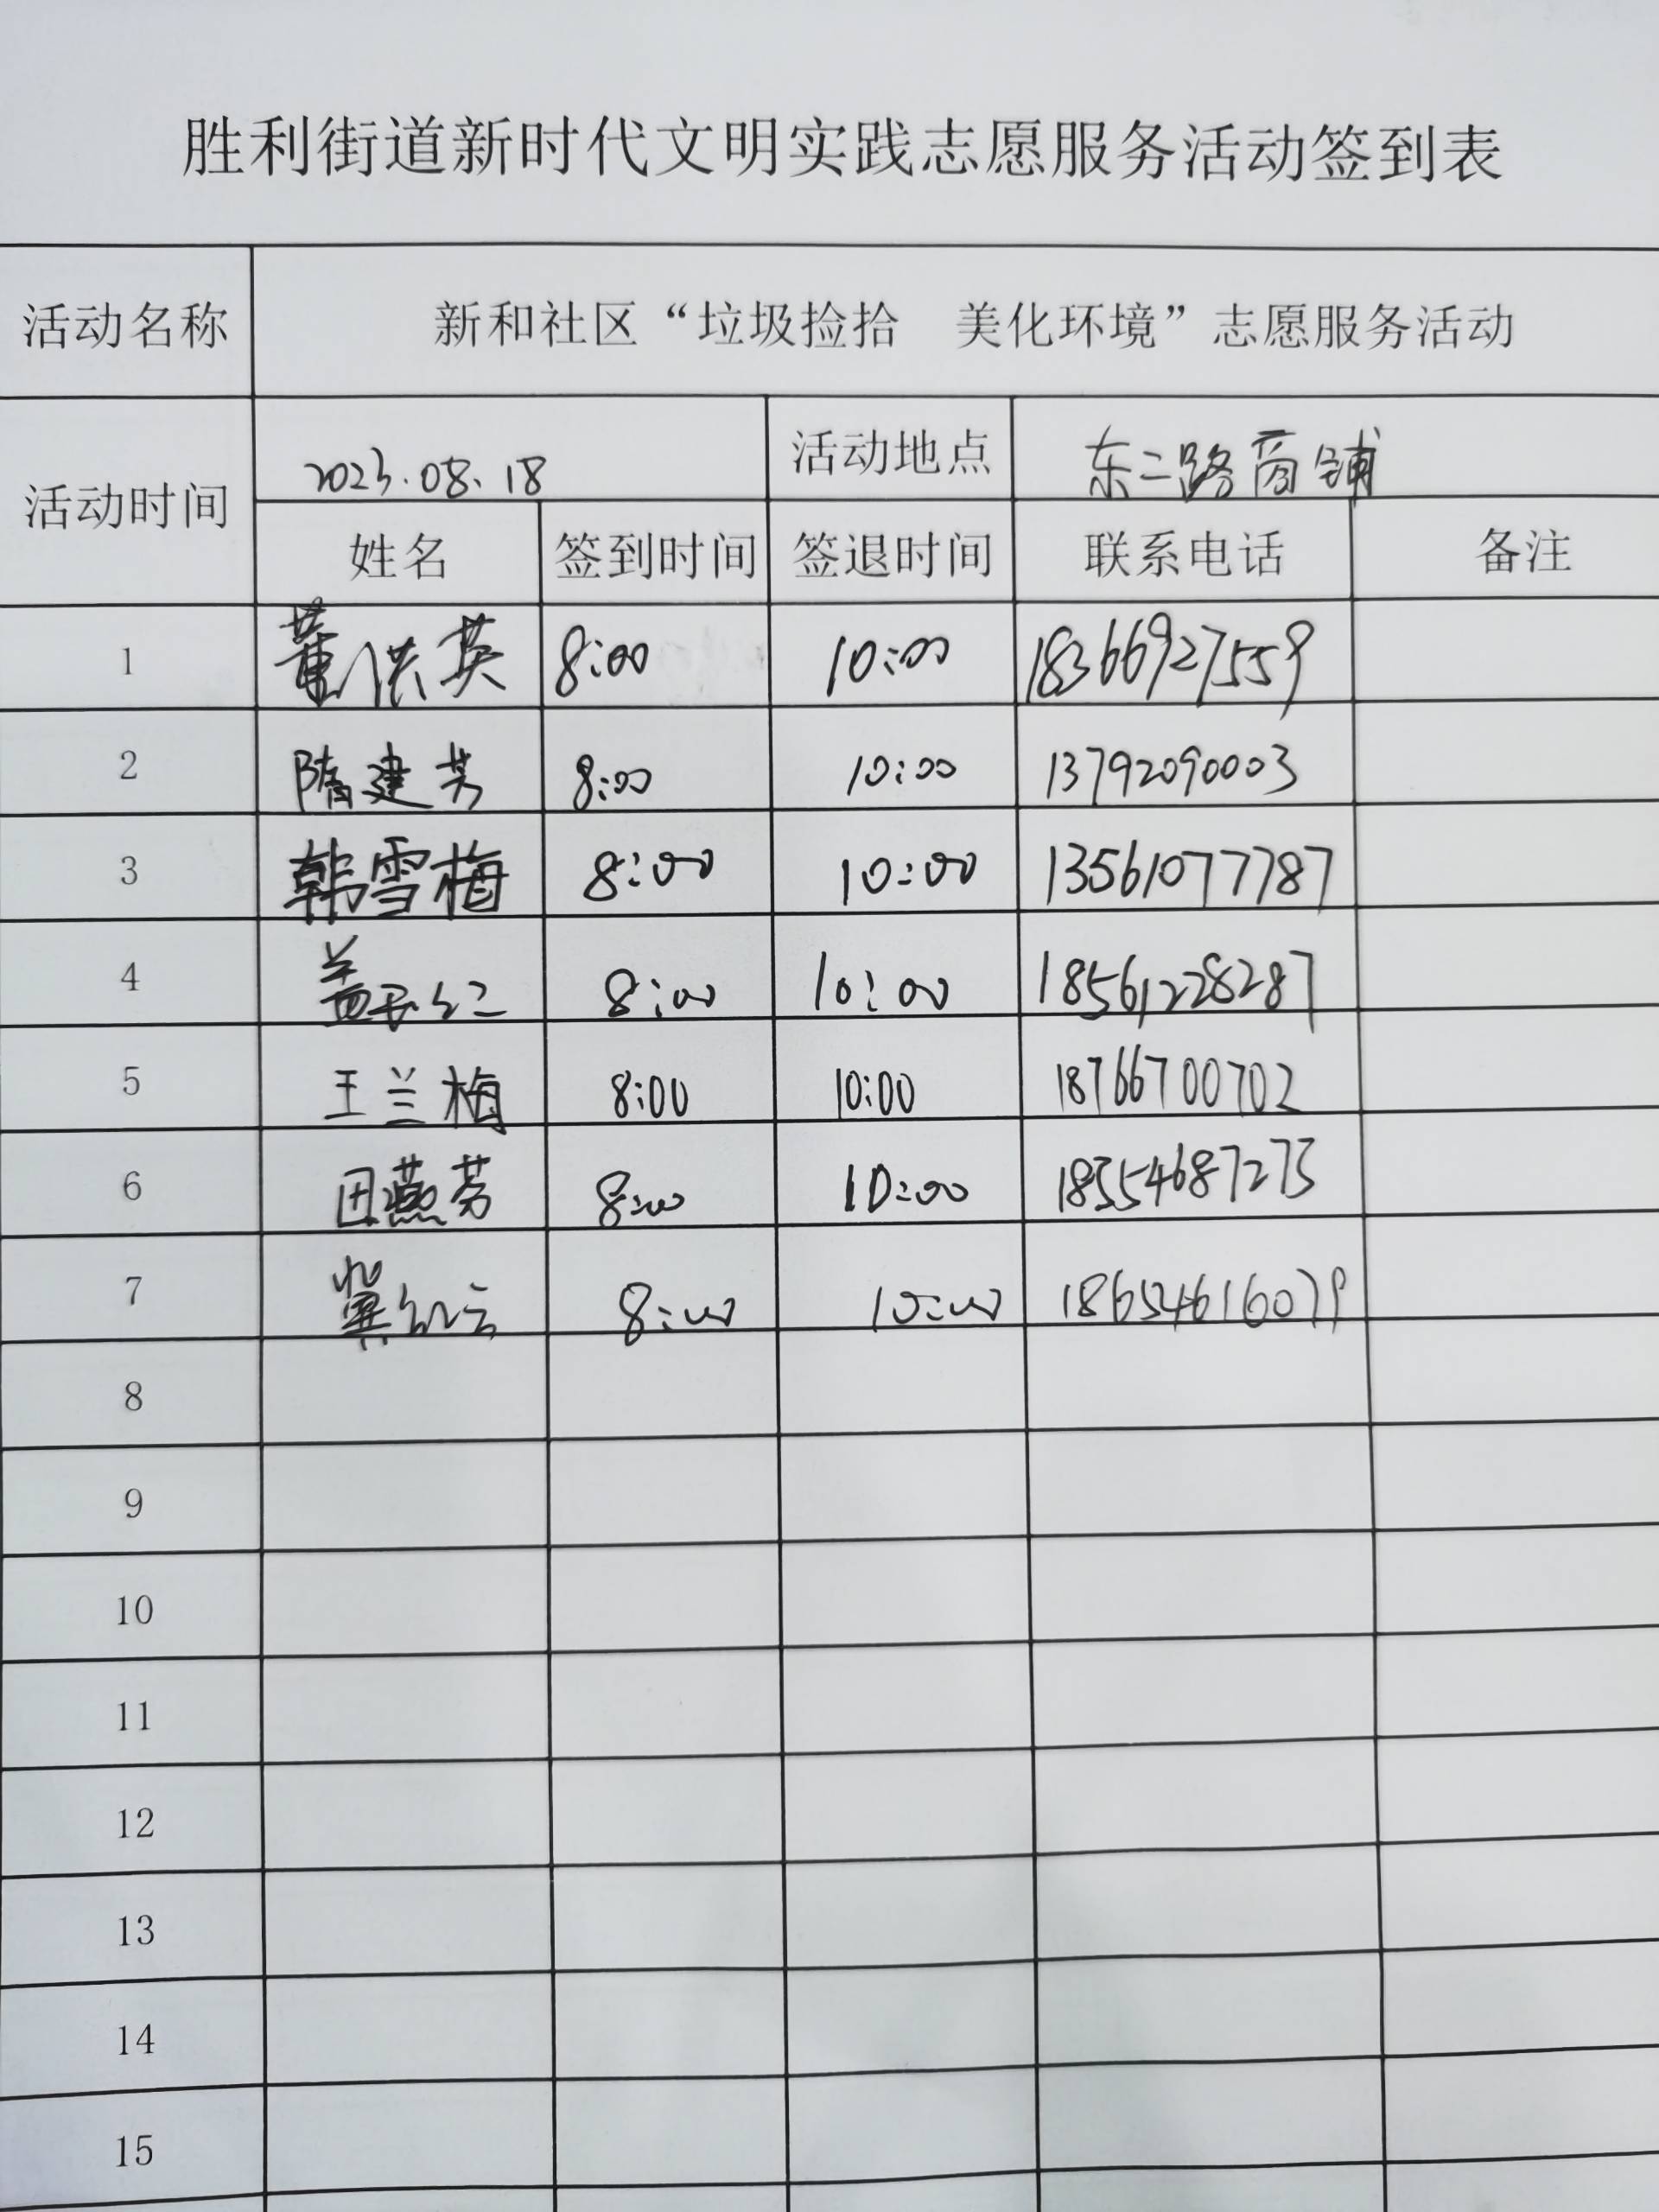 胜利街道新时代文明实践志愿服务活动签到表
活动名称 新和社区“垃圾捡拾 美化环境”志愿服务活动
活动时间 2023.08.18 活动地点 东二路商铺
姓名 签到时间 签退时间 联系电话 备注
1 董洪英 8:00 10:00 18366927559
2 隋建芳 8:00 10:00 13792090003
3 韩雪梅 8:00 10:00 13561077787
4 8:00 10:00 18561228287
5 王兰梅 8:00 10:00 18766700702
6 田燕芳 8:00 10:00 18554687273
7 冀红云 8:00 10:00
8
9
10
11
12
13
14
15